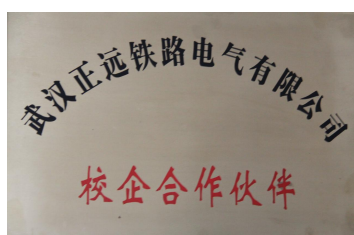 武汉正远铁路电气有限公司
校企合作伙伴